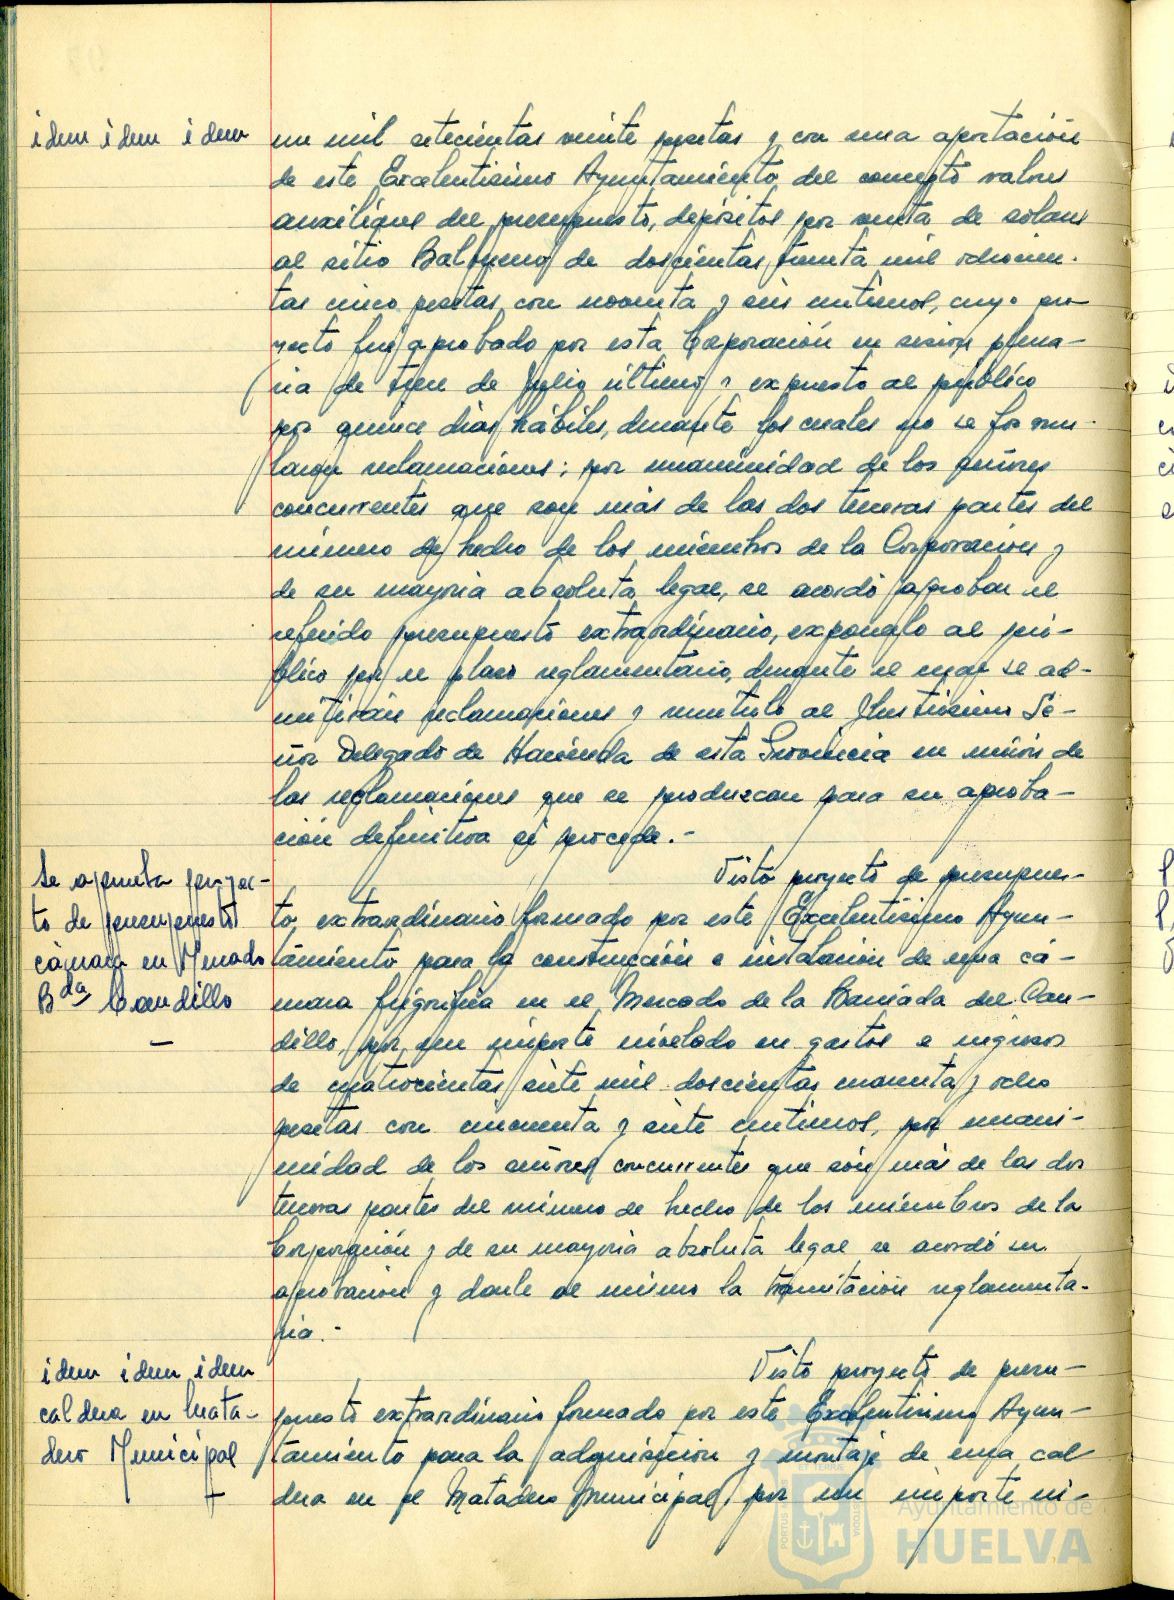 idem idem idem
un mil setecientas veinte pesetas y con una aportación
de este Excelentísimo Ayuntamiento del concepto valores
auxiliares del presupuesto, depósitos por venta de solares
al sitio Balbueno, de doscientas treinta mil ochocien-
tas cinco pesetas, con noventa y seis centimos, cuyo pro-
yecto fué aprobado por esta Corporación en sesion plena-
ria de trece de Julio último y expuesto al público
por quince dias hábiles, durante los cuales no se formu-
laron reclamaciones; por unanimidad de los señores
concurrentes que son más de las dos terceras partes del
número de hecho de los miembros de la Corporacion y
de su mayoria absoluta legal, se acordó aprobar el
referido presupuesto extraordinario, exponerlo al pú-
blico por el plazo reglamentario, durante el cual se ad-
mitirán reclamaciones y remitirlo al Ilustrisimo Se-
ñor Delegado de Hacienda de esta Provincia en unión de
las reglamaciones que se produzcan para su aproba-
ción definitiva si procede.-
Se aprueba proyec-
to de presupuesto
cámara en Mercado
Bda Caudillo
Visto proyecto de presupues-
to, extraordinario formado por este Excelentísimo Ayun-
tamiento para la construcción e instalación de una cá-
mara frigorífica en el Mercado de la Barriada del Cau-
dillo, por un importe nivelado en gastos e ingresos
de cuatrocientas siete mil doscientas cuarenta y ocho
pesetas con cincuenta y siete centimos, por unani-
midad de los señores concurrentes que són más de las dos
terceras partes del número de hecho de los miembros de la
Corporación y de su mayoria absoluta legal se acordó su
aprobación y darle al mismo la tramitación reglamenta-
ria.-
idem idem idem
caldera en Mata-
dero Municipal
Visto proyecto de presu-
puesto extraordinario formado por este Excelentisimo Ayun-
tamiento para la adquisicion y montaje de una cal
dera en el Matadero Municipal, por un importe ni-
PORTUS MARIS ET TERRAE CUSTODIA
Ayuntamiento de
HUELVA